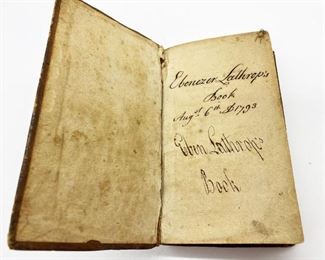 Ebenezer Lathrop's
Book
Augst. 6th 1793
Eben Lathrop's
Book